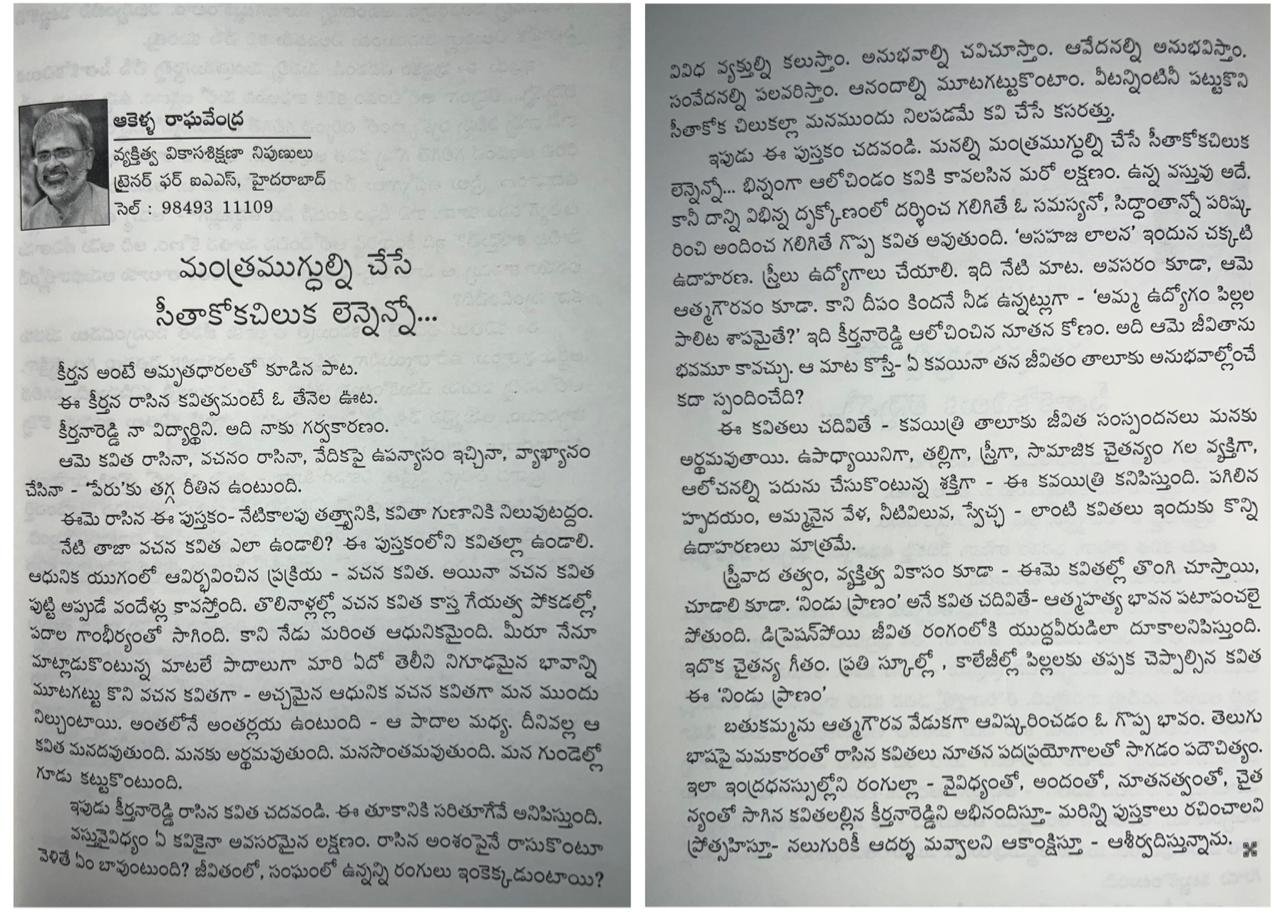 ఆకెళ్ళ రాఘవేంద్ర
వ్యక్తిత్వ వికాసశిక్షణా నిపుణులు
ట్రైనర్ ఫర్ ఐఎఎస్, హైదరాబాద్
సెల్ : 98493 11109
మంత్రముగ్ధుల్ని చేసే
సీతాకోకచిలుక లెన్నెన్నో...
కీర్తన అంటే అమృతధారలతో కూడిన పాట.
ఈ కీర్తన రాసిన కవిత్వమంటే ఓ తేనెల ఊట.
కీర్తనారెడ్డి నా విద్యార్థిని. అది నాకు గర్వకారణం.
ఆమె కవిత రాసినా, వచనం రాసినా, వేదికపై ఉపన్యాసం ఇచ్చినా, వ్యాఖ్యానం
చేసినా - 'పేరు'కు తగ్గ రీతిన ఉంటుంది.
ఈమె రాసిన ఈ పుస్తకం- నేటికాలపు తత్త్వానికి, కవితా గుణానికి నిలువుటద్దం.
నేటి తాజా వచన కవిత ఎలా ఉండాలి? ఈ పుస్తకంలోని కవితల్లా ఉండాలి.
ఆధునిక యుగంలో ఆవిర్భవించిన ప్రక్రియ - వచన కవిత. అయినా వచన కవిత
పుట్టి అప్పుడే వందేళ్లు కావస్తోంది. తొలినాళ్లల్లో వచన కవిత కాస్త గేయత్వ పోకడల్లో,
పదాల గాంభీర్యంతో సాగింది. కాని నేడు మరింత ఆధునికమైంది. మీరూ నేనూ
మాట్లాడుకొంటున్న మాటలే పాదాలుగా మారి ఏదో తెలీని నిగూఢమైన భావాన్ని
మూటగట్టు కొని వచన కవితగా - అచ్చమైన ఆధునిక వచన కవితగా మన ముందు
నిల్చుంటాయి. అంతలోనే అంతర్లయ ఉంటుంది - ఆ పాదాల మధ్య. దీనివల్ల ఆ
కవిత మనదవుతుంది. మనకు అర్థమవుతుంది. మనసొంతమవుతుంది. మన గుండెల్లో
గూడు కట్టుకొంటుంది.
ఇపుడు కీర్తనారెడ్డి రాసిన కవిత చదవండి. ఈ తూకానికి సరితూగేవే అనిపిస్తుంది.
వస్తువైవిధ్యం ఏ కవికైనా అవసరమైన లక్షణం. రాసిన అంశంపైనే రాసుకొంటూ
వెళితే ఏం బావుంటుంది? జీవితంలో, సంఘంలో ఉన్నన్ని రంగులు ఇంకెక్కడుంటాయి?
వివిధ వ్యక్తుల్ని కలుస్తాం. అనుభవాల్ని చవిచూస్తాం. ఆవేదనల్ని అనుభవిస్తాం.
సంవేదనల్ని పలవరిస్తాం. ఆనందాల్ని మూటగట్టుకొంటాం. వీటన్నింటినీ పట్టుకొని
సీతాకోక చిలుకల్లా మనముందు నిలపడమే కవి చేసే కసరత్తు.
ఇపుడు ఈ పుస్తకం చదవండి. మనల్ని మంత్రముగ్ధుల్ని చేసే సీతాకోకచిలుక
లెన్నెన్నో... భిన్నంగా ఆలోచిండం కవికి కావలసిన మరో లక్షణం. ఉన్న వస్తువు అదే.
కానీ దాన్ని విభిన్న దృక్కోణంలో దర్శించ గలిగితే ఓ సమస్యనో, సిద్ధాంతాన్నో పరిష్క
రించి అందించ గలిగితే గొప్ప కవిత అవుతుంది. 'అసహజ లాలన' ఇందున చక్కటి
ఉదాహరణ. స్త్రీలు ఉద్యోగాలు చేయాలి. ఇది నేటి మాట. అవసరం కూడా, ఆమె
ఆత్మగౌరవం కూడా. కాని దీపం కిందనే నీడ ఉన్నట్లుగా - 'అమ్మ ఉద్యోగం పిల్లల
పాలిట శాపమైతే?' ఇది కీర్తనారెడ్డి ఆలోచించిన నూతన కోణం. అది ఆమె జీవితాను
భవమూ కావచ్చు. ఆ మాట కొస్తే- ఏ కవయినా తన జీవితం తాలూకు అనుభవాల్లోంచే
కదా స్పందించేది?
ఈ కవితలు చదివితే - కవయిత్రి తాలూకు జీవిత సంస్పందనలు మనకు
అర్థమవుతాయి. ఉపాధ్యాయినిగా, తల్లిగా, స్త్రీగా, సామాజిక చైతన్యం గల వ్యక్తిగా,
ఆలోచనల్ని పదును చేసుకొంటున్న శక్తిగా - ఈ కవయిత్రి కనిపిస్తుంది. పగిలిన
హృదయం, అమ్మనైన వేళ, నీటివిలువ, స్వేచ్ఛ - లాంటి కవితలు ఇందుకు కొన్ని
ఉదాహరణలు మాత్రమే.
స్త్రీవాద తత్వం, వ్యక్తిత్వ వికాసం కూడా - ఈమె కవితల్లో తొంగి చూస్తాయి,
చూడాలి కూడా. 'నిండు ప్రాణం' అనే కవిత చదివితే- ఆత్మహత్య భావన పటాపంచలై
పోతుంది. డిప్రెషన్‌పోయి జీవిత రంగంలోకి యుద్ధవీరుడిలా దూకాలనిపిస్తుంది.
ఇదొక చైతన్య గీతం. ప్రతి స్కూల్లో , కాలేజీల్లో పిల్లలకు తప్పక చెప్పాల్సిన కవిత
ఈ 'నిండు ప్రాణం'
బతుకమ్మను ఆత్మగౌరవ వేడుకగా ఆవిష్కరించడం ఓ గొప్ప భావం. తెలుగు
భాషపై మమకారంతో రాసిన కవితలు నూతన పదప్రయోగాలతో సాగడం పదౌచిత్యం.
ఇలా ఇంద్రధనస్సుల్లోని రంగుల్లా - వైవిధ్యంతో, అందంతో, నూతనత్వంతో, చైత
న్యంతో సాగిన కవితలల్లిన కీర్తనారెడ్డిని అభినందిస్తూ- మరిన్ని పుస్తకాలు రచించాలని
ప్రోత్సహిస్తూ- నలుగురికీ ఆదర్శ మవ్వాలని ఆకాంక్షిస్తూ - ఆశీర్వదిస్తున్నాను.